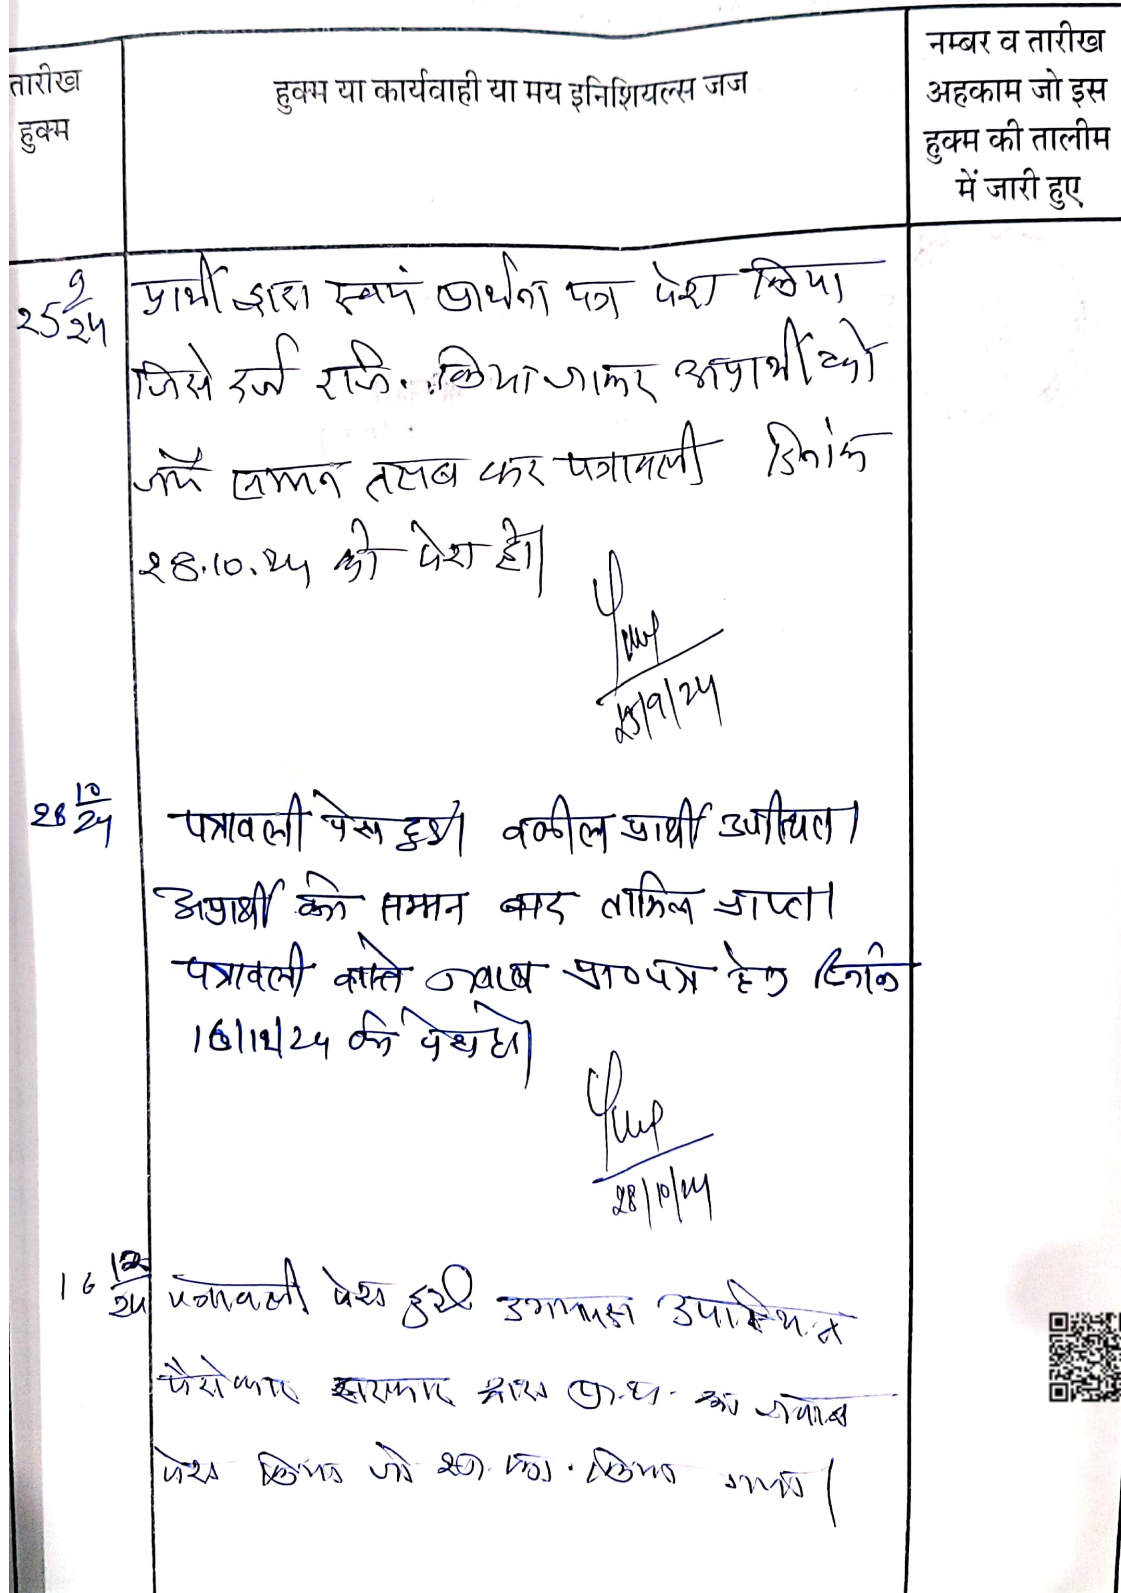 तारीख
हुक्म
हुक्म या कार्यवाही या मय इनिशियल्स जज
नम्बर व तारीख
अहकाम जो इस
हुक्म की तालीम
में जारी हुए
25 9/24
प्रार्थी द्वारा स्वयं प्रार्थना पत्र पेश किया
जिसे दर्ज रजि. किया जाकर अप्रार्थी को
जर्ये सम्मन तलब कर पत्रावली दिनांक
28.10.24 को पेश हो।
25/9/24
28 10/24
पत्रावली पेश हुई। वकील प्रार्थी उपस्थित।
अप्रार्थी को सम्मन बाद तामिल प्राप्त।
पत्रावली वास्ते जवाब प्रा०पत्र हेतु दिनांक
16/12/24 को पेश हो।
28/10/24
16 12/24
पत्रावली पेश हुई उभयपक्ष उपस्थित
पैरोकार सरकार द्वारा प्रा.प. का जवाब
पेश किया जो किया गया।